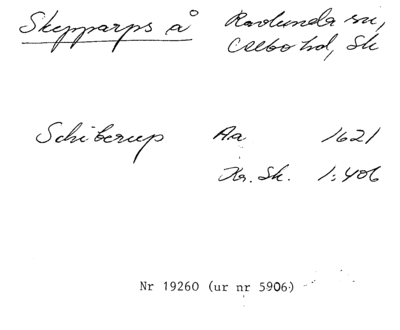 Skepparps å Ravlunda sn,
Albo hd, Sk
Schiberup Aa 1621
Hr. Sk. 1:406
Nr 19260 (ur nr 5906)